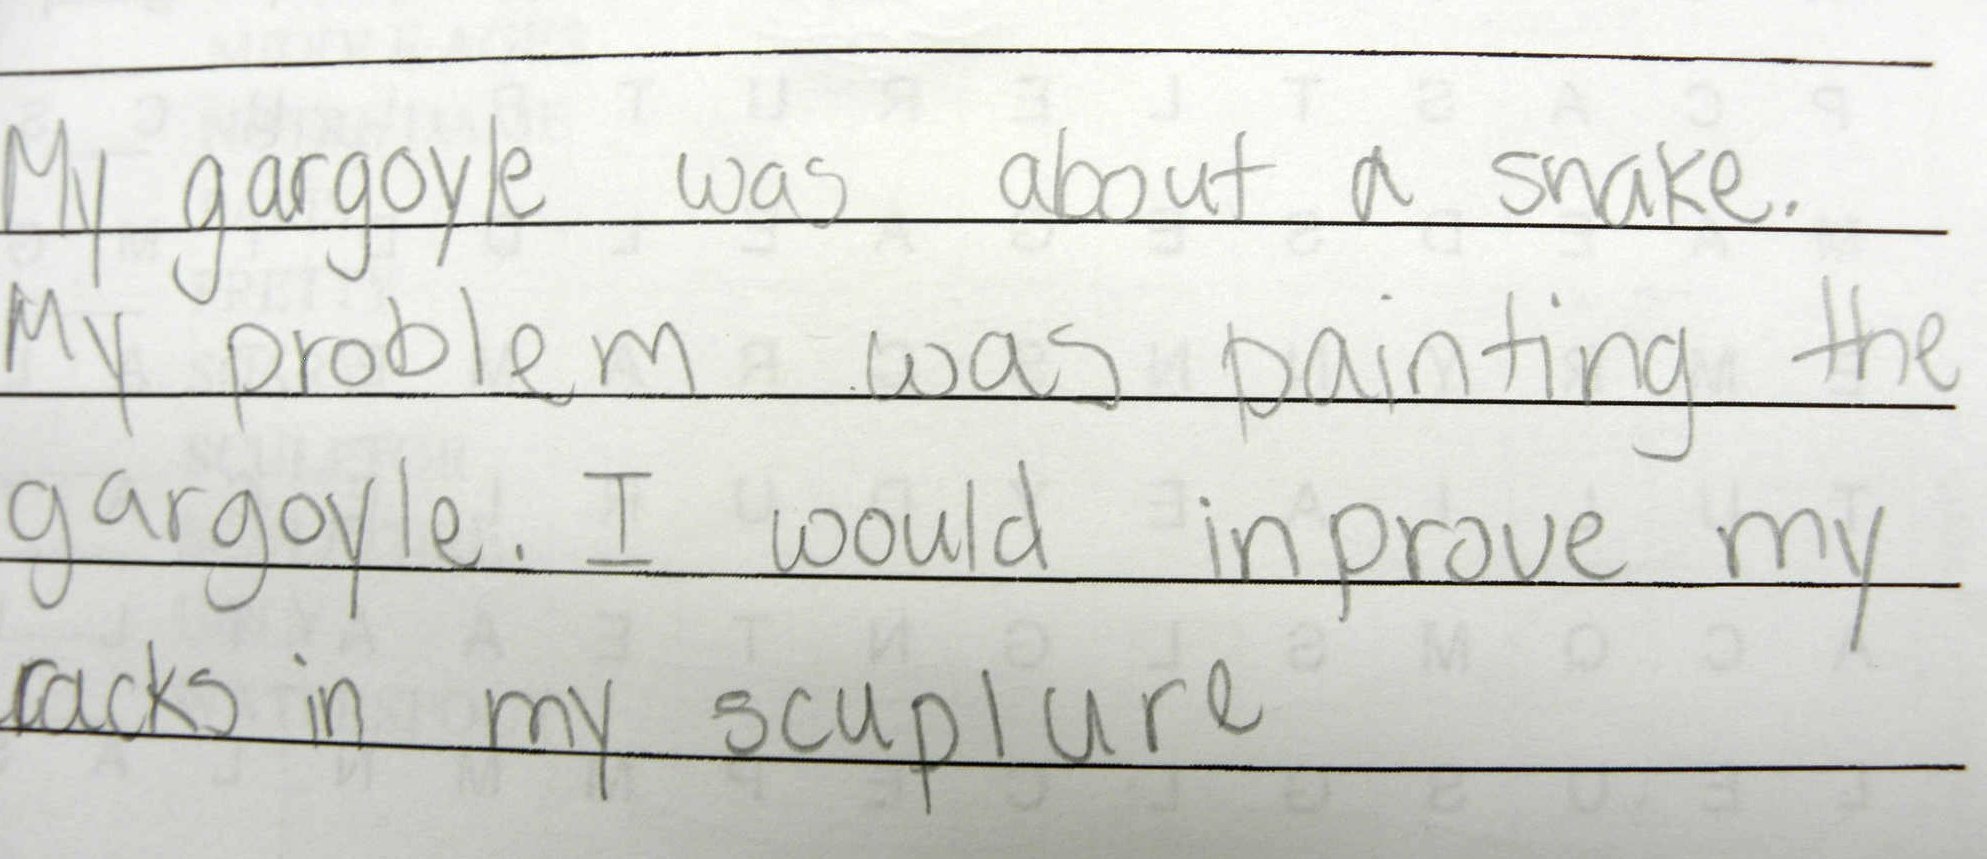 My gargoyle was about a snake.
My problem was painting the
gargoyle. I would inprove my
racks in my scuplure